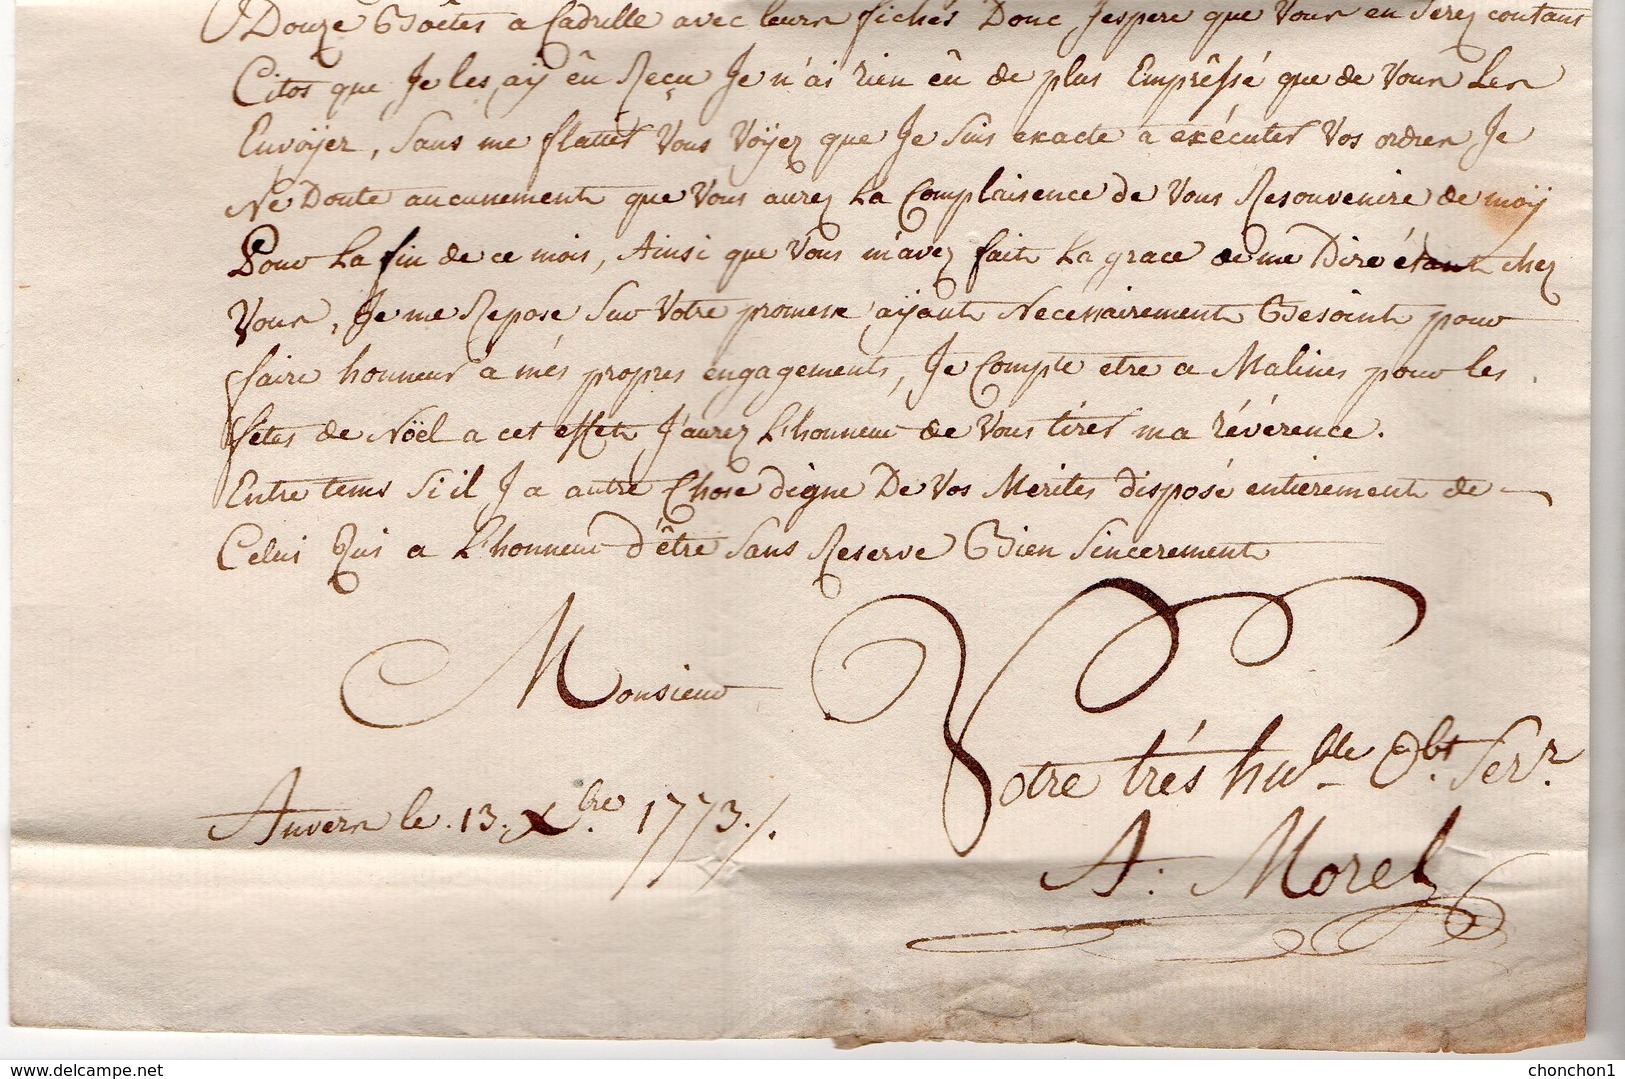 Douze Boëtes a Cadrille avec leurs fiches Donc Jespere que Vous en Serez contant
Citos que Je les aÿ eû Reçu Je n'ai rien eû de plus Emprêssé que de Vous Les
Envoÿer, Sans me flatter Vous Voÿez que Je Suis exacte a exécuter Vos ordres Je
Ne Doute aucunement que Vous aurez La Complaisence de Vous Resouvenire de moÿ
Pour La fin de ce mois, Ainsi que Vous m'avez fait La grace de me Dire étant chez
Vous, Je me Repose Sur Votre promesse aÿant Necessairement Besoint pour
faire honneur a més propres engagements, Je Compte etre a Malines pour les
fétes de Noël a cet effet, J'aurez L'honneur de Vous tirér ma révérence.
Entre tems Si il J a autre Chose digne De Vos Merites disposé entierement de
Celui Qui a L'honneur d'être Sans Reserve Bien Sincerement
Monsieur
Votre trés hu^ble Obt. Serr.
Anvers le 13. Xbre. 1773./.
A: Morel
https://www.delcampe.net
chonchon1